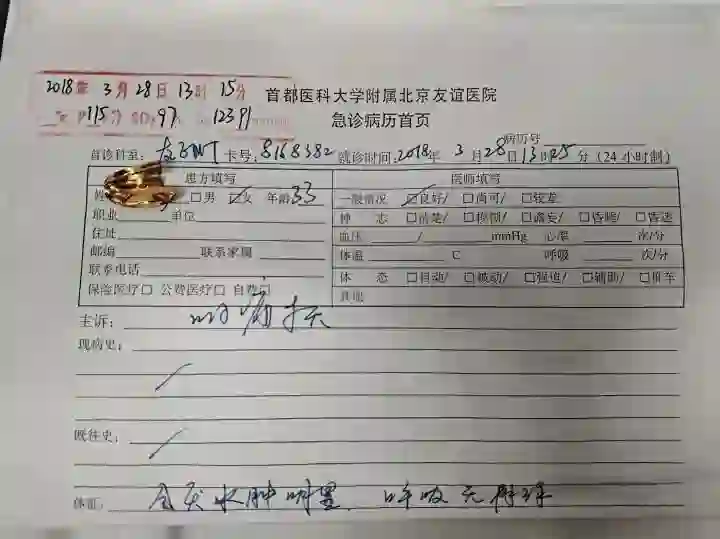 2018年 3月 28日 13时 15分
首都医科大学附属北京友谊医院
P115分 97 123
急诊病历首页
病历号
首诊科室: 卡号: 8168382 就诊时间: 2018年 3月28日13时25分 (24小时制)
患方填写 医师填写
姓 □男 ☑女 年龄33 一般情况 ☑良好/ □尚可/ □较差
职业 单位 神 志 □清楚/ □模糊/ □谵妄/ □昏睡/ □昏迷
住址 血压 / mmHg 心率 次/分
邮编 联系家属 体温 ℃ 呼吸 次/分
联系电话 体 态 □自动/ □被动/ □强迫/ □辅助/ □推车
保险医疗□ 公费医疗□ 自费□ 其他
主诉:
现病史:
既往史:
体征: 水肿明显. 呼吸无